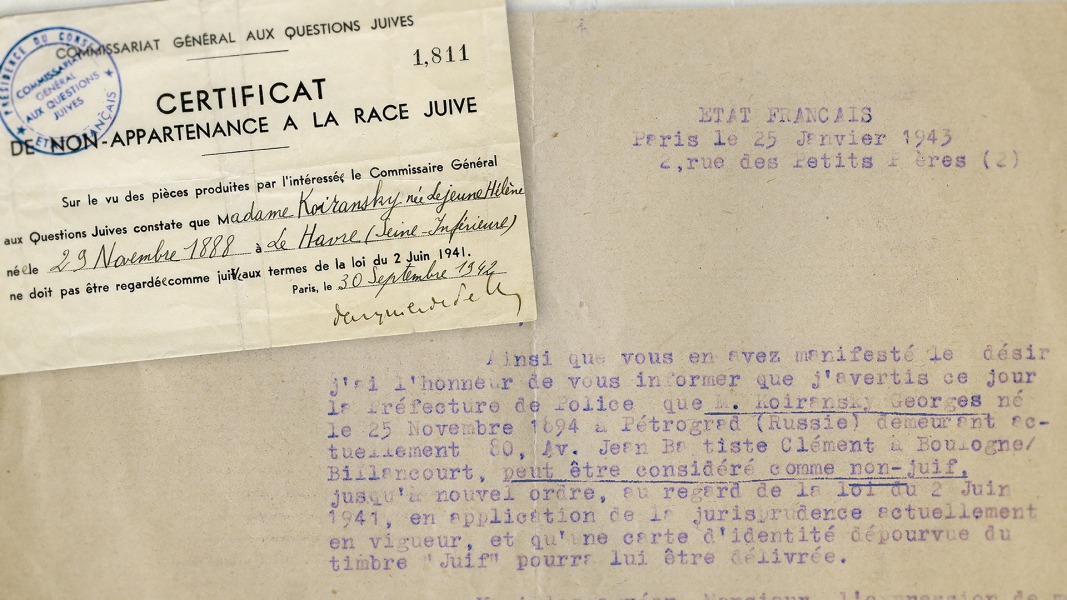 COMMISSARIAT GÉNÉRAL AUX QUESTIONS JUIVES
1,811
PRÉSIDENCE DU CONSEIL
COMMISSARIAT
GÉNÉRAL
AUX QUESTIONS
JUIVES
ETAT FRANÇAIS
CERTIFICAT
DE NON-APPARTENANCE A LA RACE JUIVE
Sur le vu des pièces produites par l'intéressée le Commissaire Général
aux Questions Juives constate que Madame Koiransky née Lejeune Hélène
née le 29 Novembre 1888 à Le Havre (Seine-Inférieure)
ne doit pas être regardée comme juive aux termes de la loi du 2 Juin 1941.
Paris, le 30 Septembre 1942
ETAT FRANCAIS
Paris le 25 Janvier 1943
2,rue des Petits Pères (2)
Ainsi que vous en avez manifesté le désir
j'ai l'honneur de vous informer que j'avertis ce jour
la Préfecture de Police que M. Koiransky Georges né
le 25 Novembre 1894 à Pétrograd (Russie) demeurant ac-
tuellement 80, Av. Jean Ba tiste Clément à Boulogne/
Billancourt, peut être considéré comme non-juif,
jusqu'à nouvel ordre, au regard de la loi du 2 Juin
1941, en application de la jurisprudence actuellement
en vigueur, et qu'une carte d'identité dépourvue du
timbre "Juif" pourra lui être délivrée.